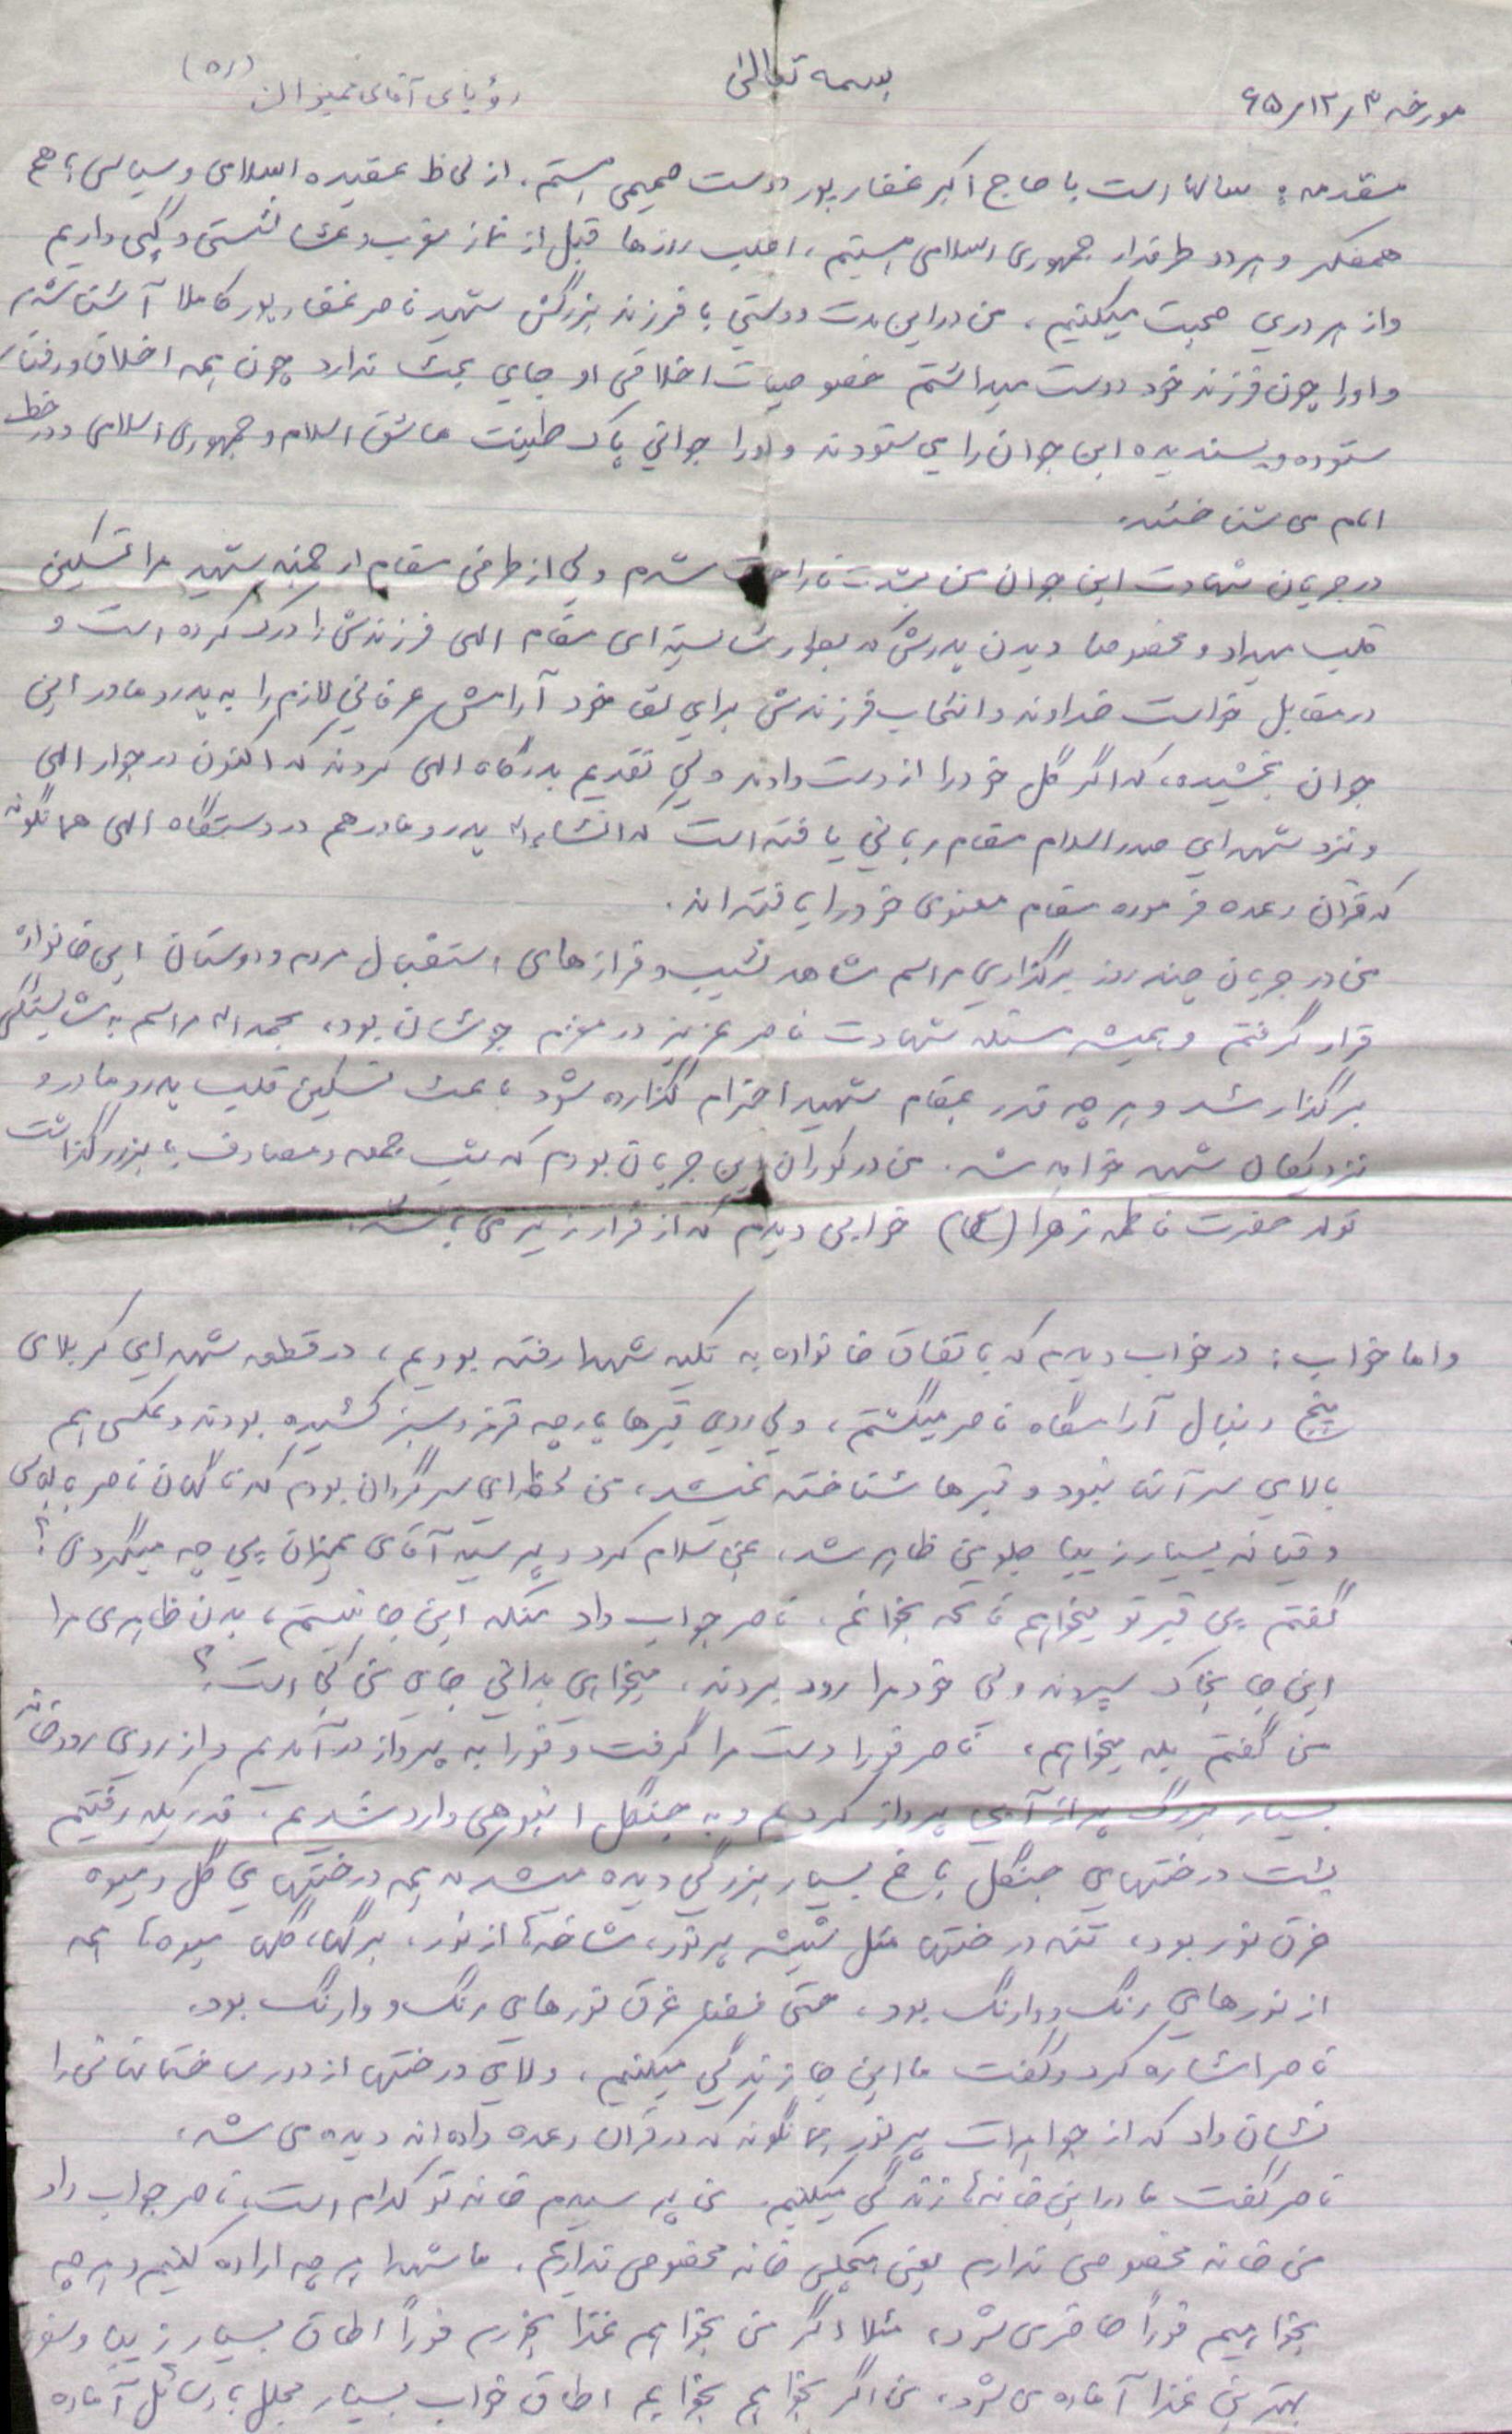 بسمه تعالی
مورخه ۳ر۱۲ر۶۵
رؤیای آقای تمیزان (۵۱)
مقدمه: سالها است با حاج اکبر غفارپور دوست صمیمی هستم، از لحاظ عقیده اسلامی و سیاسی با هم
همفکر و هردو طرفدار جمهوری اسلامی هستیم، اغلب روزها قبل از نماز مغرب و عشا نشستی و گپی داریم
و از هر دری صحبت میکنیم، من در این مدت دوستی با فرزند بزرگش شهید ناصر غفارپور کاملا آشنا شدم
و او را چون فرزند خود دوست میداشتم خصوصیات اخلاقی او جای بحث ندارد چون همه اخلاق و رفتار
ستوده و پسندیده این جوان را می ستودند و او را جوانی پاک طینت عاشق اسلام و جمهوری اسلامی و در خط
امام می شناختند.
در جریان شهادت این جوان من بشدت ناراحت شدم ولی از طرفی مقام از جنبه شهید مرا تسکین
قلب میداد و مخصوصا دیدن پدرش که بطور شایسته ای مقام الهی فرزندش را درک کرده است و
در مقابل خواست خداوند و انتخاب فرزندش برای لقا خود آرامش عرفانی لازم را به پدر و مادر این
جوان بخشیده، که اگر گل خود را از دست دادند ولی تقدیم بدرگاه الهی کردند که اکنون در جوار الهی
و نزد شهدای صدر اسلام مقام ربانی یافته است که انشاءاله پدر و مادر هم در دستگاه الهی همانگونه
که قرآن وعده فرموده مقام معنوی خود را یافته اند.
من در جریان چند روز برگذاری مراسم شاهد نشیب و فرازهای استقبال مردم و دوستان این خانواده
قرار گرفتم و همیشه مسئله شهادت ناصر عزیز در مغزم جوشان بود، بحمداله مراسم به شایستگی
برگذار شد و هر چه قدر بمقام شهید احترام گذارده شود باعث تسکین قلب پدر و مادر و
نزدیکان شهید خواهد شد. من در کوران این جریان بودم که شب جمعه و مصادف با بزرگداشت
تولد حضرت فاطمه زهرا (س) خوابی دیدم که از قرار زیر می باشد.
و اما خواب: در خواب دیدم که باتفاق خانواده به تکیه شهدا رفته بودیم، در قطعه شهدای کربلای
پنج دنبال آرامگاه ناصر میگشتم، ولی روی قبرها پارچه قرمز و سبز کشیده بودند و عکسی هم
بالای سر آنان نبود و قبرها شناخته نمیشد، من لحظه ای سرگردان بودم که ناگهان ناصر با لباس
و قیافه بسیار زیبا جلوی من ظاهر شد، بمن سلام کرد و پرسید آقای تمیزان پی چه میگردی؟
گفتم پی قبر تو میخواهم فاتحه بخوانم، ناصر جواب داد منکه این جا نیستم، بدن ظاهری مرا
این جا بخاک سپردند ولی خود مرا زود بردند، میخواهی بدانی جای من کجا است؟
من گفتم بله میخواهم، ناصر فورا دست مرا گرفت و فورا به پرواز درآمدیم و از روی رودخانه
بسیار بزرگ پر از آبی پرواز کردیم و به جنگل انبوهی وارد شدیم. قدری که رفتیم
پشت درختهای جنگل باغ بسیار بزرگی دیده میشد که همه درختهای گل و میوه
غرق نور بود، تنه درختها مثل شیشه پر نور، شاخه ها از نور، برگها، گلها میوه ها همه
از نورهای رنگ و وارنگ بود، حتی فضا غرق نورهای رنگ و وارنگ بود.
ناصر اشاره کرد و گفت ما این جا زندگی میکنیم، و لای درختها از دور ساختمانهائی را
نشان داد که از جواهرات پر نور همانگونه که در قرآن وعده داده اند دیده می شد.
ناصر گفت ما در این خانه ها زندگی میکنیم. من پرسیدم خانه تو کدام است، ناصر جواب داد
من خانه مخصوصی ندارم یعنی هیچکس خانه مخصوصی نداریم. ما شهدا هر چه اراده کنیم و هر چه
بخواهیم فوراً حاضر می شود، مثلا اگر من بخواهم غذا بخورم فوراً اطاق بسیار زیبا و سفره
بهترین غذا آماده می شود، من اگر بخواهم بخوابم اطاق خواب بسیار مجلل با وسائل آماده